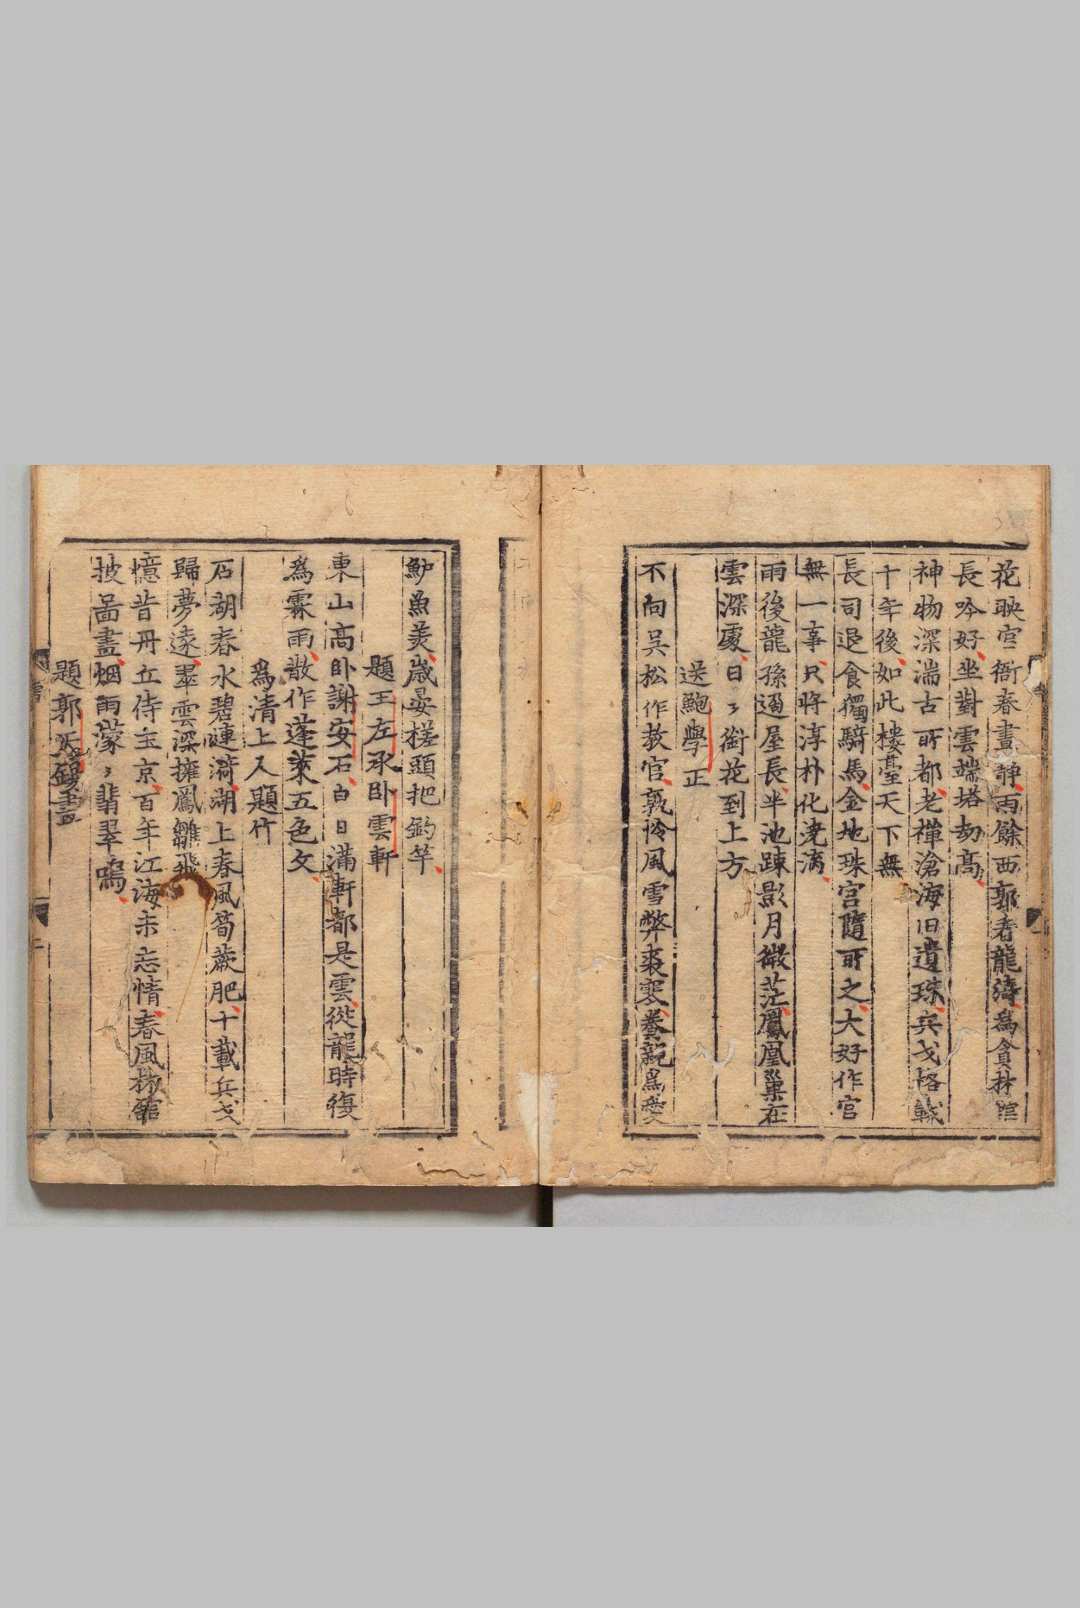 花映宫衙春晝静雨餘西郭看龍漪爲貪林館
長吟好坐對雲端塔劫高
神物深湍古所都老禪滄海旧遺珠兵戈格戟
十年後如此樓臺天下無
長司退食獨騎馬金地珠宮隨所之大好作官
無一事只將淳朴化澆漓
雨後龍孫過屋長半池踈影月微茫鳳凰巢在
雲深處日々銜花到上方
送鮑學正
不向吳松作教官孰怜風雪弊裘寒養親爲愛
鲈魚羙歳晏槎頭把釣竿
題王左丞卧雲軒
東山高卧謝安石白日滿軒都是雲從龍時復
爲霖雨散作蓬萊五色文
爲清上人題竹
石湖春水碧漣漪湖上春風筍蕨肥十載兵戈
歸夢遠翠雲深擁鳳雛飛
憶昔丹丘侍玉京百年江海未忘情春風椒館
披啚畫烟雨濛々翡翠鳴
題郭天錫畫